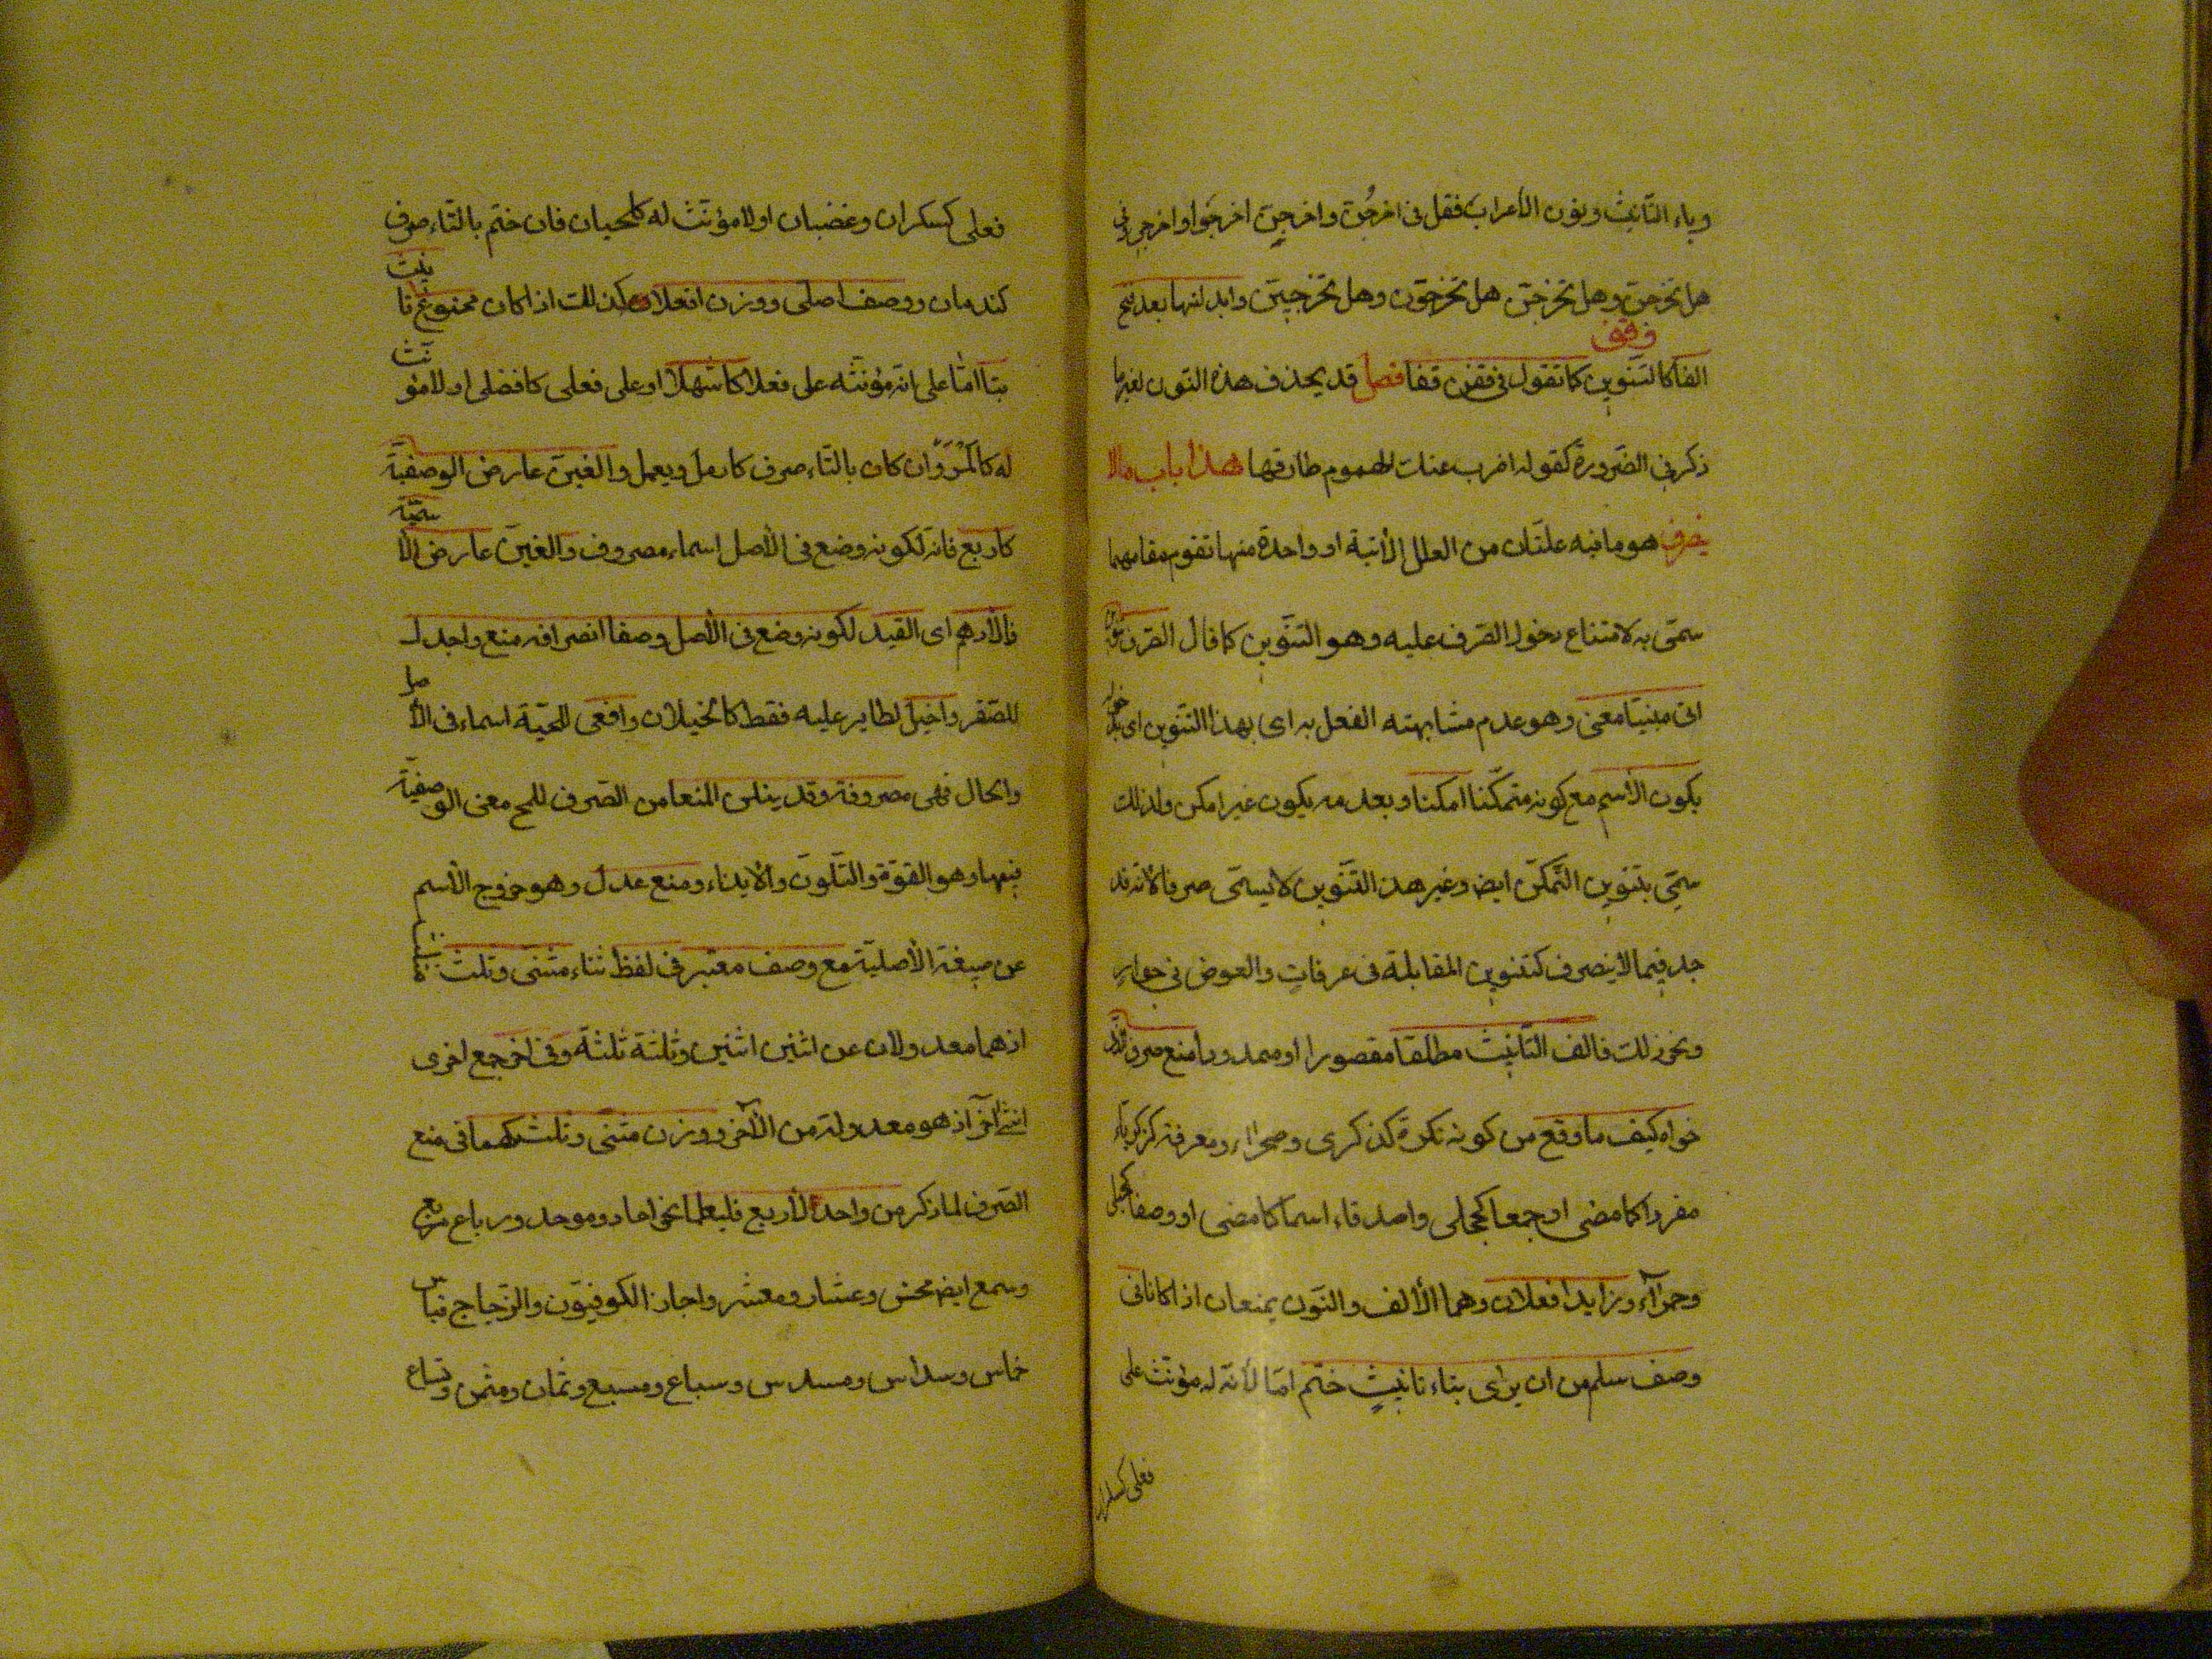 وياء التّانيث ونون الأعراب فقل فى اخرجُن واخرجِن اخرجوا واخرجى وفى
هل تخرجن وهل تخرجن هل تخرجون وهل تخرجين وابدلنها بعد فتح
وقف
الفا كالتنوين كما تقول فى قفن قفا فصل قد يحذف هذه النون لغير ما
ذكر فى الضّرورة كقوله اضرب عنك الهموم طارقها هذا باب مالا
ينصرف هو مافيه علتان من العلل الأتية او واحدة منها تقوم مقامهما
سمّى به لامتناع دخول الصّرف عليه وهو التنّوين كما قال الصّرف تنوين
اتى مبنيا معنى وهو عدم مشابهته الفعل به اى بهذا التنّوين اى بدخوله
يكون الأسم مع كونه متمكّنا امكنا وبعدمه يكون غير امكن ولذلك
سمّى بتنوين التّمكّن ايض وغير هذا التنّوين لا يسمّى صرفا لأنه قد
جد فيما لا ينصرف كتنوين المقابلة فى عرفاتٍ والعوض فى جوارٍ
ونحو ذلك فالف التّانيث مطلقا مقصورا او ممدودا منع صرف الّذى
حواه كيف ما وقع من كونه نكرة كذكرى وصحراء ومعرفة كزكرياء
مفردا كما مضى او جمعا كحجلى واصدقاء اسما كما مضى او وصفا كحبلى
وحمرآء وزايدا فعلان وهما الألف والنّون يمنعان اذا كانا فى
وصف سلم من ان يرى بتاء تانيثٍ ختم امّا لأنّه له مؤنّث على
فعلى كسكران
فعلى كسكران وغضبان اولا مؤنّث له كلحيان فان ختم بالتّاء صرف
كندمان ووصف اصلى ووزن افعلا وكذلك اذا كان ممنوع تانيث
بتا امّا على انّه مؤنثه على فعلا كاشهلا او على فعلى كافضلى او لا مؤنّث
له كاكمر وان كان بالتّاء صرف كارمل ويعمل والغين عارض الوصفية
كاربع فانّه لكونه وضع فى الأصل اسما، مصروف والغين عارض الأسميّة
فالأدهم اى القيد لكونه وضع فى الأصل وصفا انصرافه منع واجدل
للصّقر واخيل لطاير عليه فقط كالخيلان وافعى للحيّة اسماء فى الأصل
والحال فهى مصروفة وقد ينلن المنعا من الصّرف للمح معنى الوصفيّة
فيها وهو القوّة والتّلون والأيذاء ومنع عدل وهو خروج الأسم
عن صيغة الأصلية مع وصف معتبر فى لفظ ثناء مثنى وثلث
اذ هما معدولان عن اثنين اثنين وثلثة ثلثة وفى اخر جمع اخرى
انثى آخر اذ هو معدولة من الآخر ووزن مثنى وثلث كهما فى منع
الصّرف لما ذكر من واحد لأربع فليعلما نحو احاد وموحد ورباع مربع
وسمع ايض مخمس وعشار ومعشر واجاز الكوفيّون والزّجاج قياس
خماس وسداس ومسدس وسباع ومسبع وثمان ومثمن وتساع